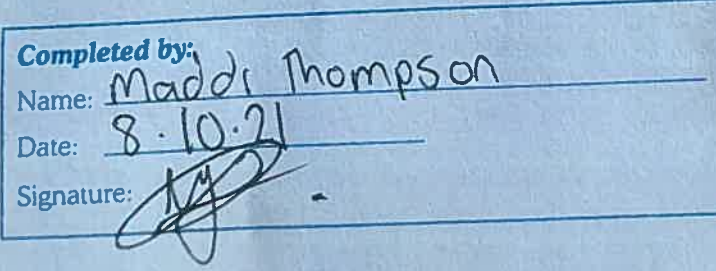 Completed by:
Name: Maddi Thompson
Date: 8.10.21
Signature: